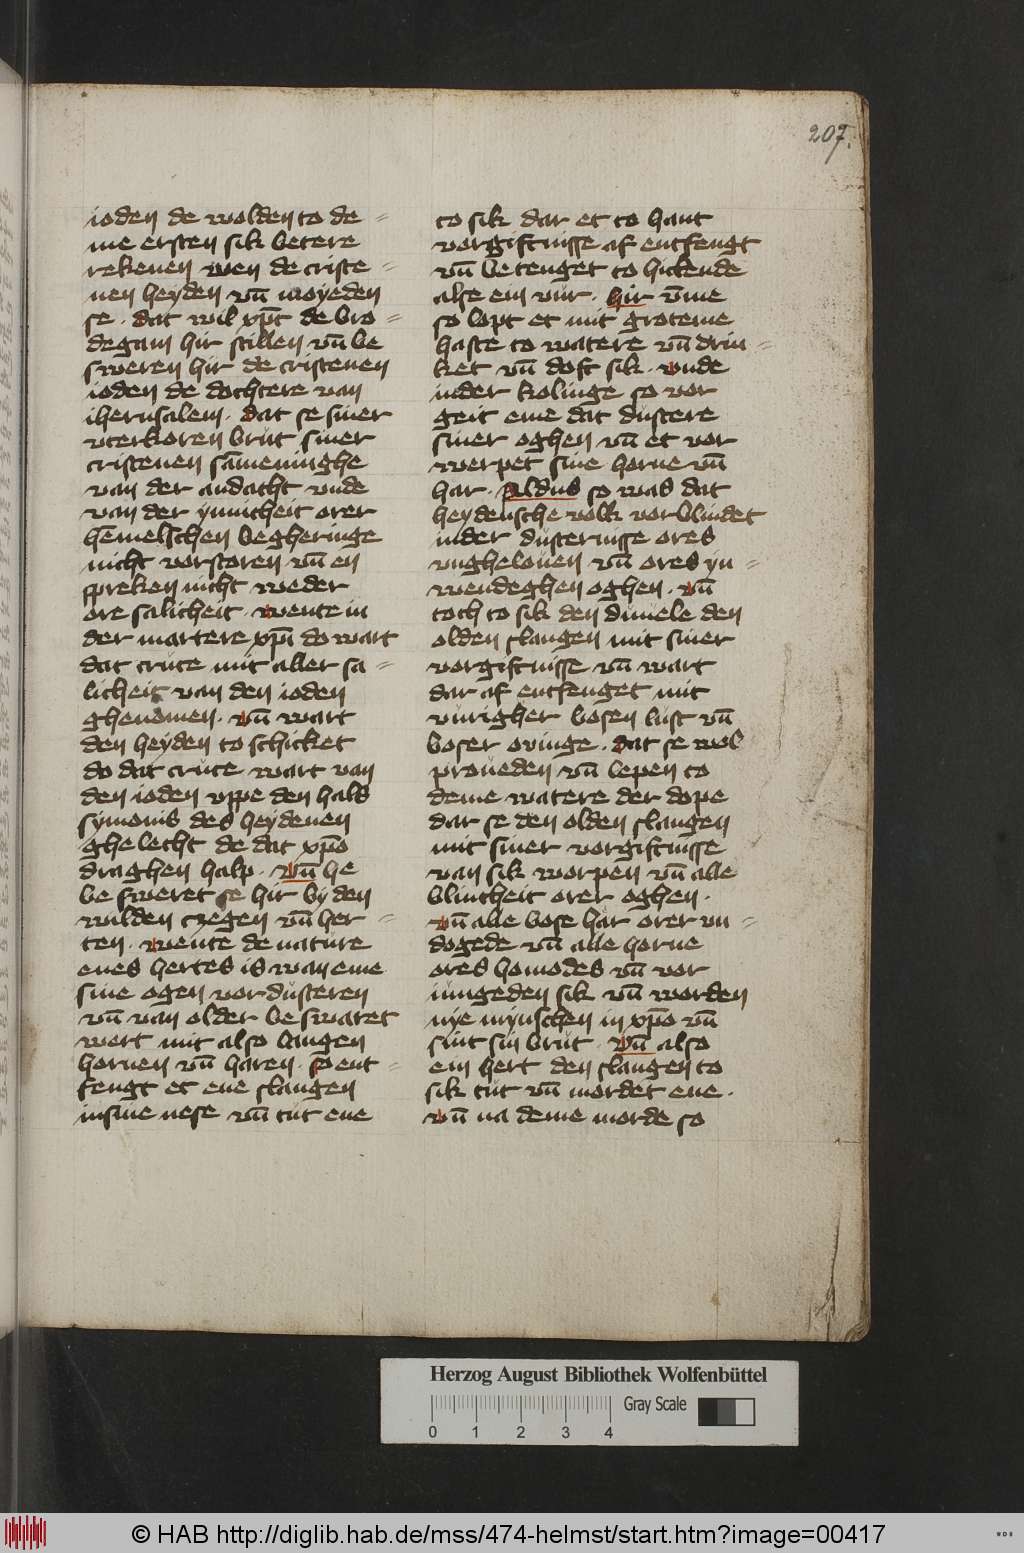 207.
ioden de wolden to de =
me ersten sik betere
rekenen wen de criste =
nen heyden vn̄ moyeden
se · dat wil xp̄c de bro =
degam hir stillen vn̄ be
sweren hir de cristenen
ioden de dochtere van
iherusalem · dat se siner
vterkoren brůt siner
cristenen sāmeninghe
van der andacht vnde
van der ynnicheit orer
hēmelschen begheringe
nicht vorstoren vn̄ en
spreken nicht weder
ore salicheit · wente in
der martere xp̄i do wart
dat crůce mit aller sa =
licheit van den ioden
ghenōmen · vn̄ wart
den heyden to schicket
do dat crůce wart van
den ioden vppe den hals
symonis des heydenen
ghelecht de dat xp̄o
draghen halp · vn̄ he
besweret se hir by den
wilden czegen vn̄ her =
ten · wente de natůre
enes hertes is wan eme
sine ogen vordůsteren
vn̄ van older beswaret
wert mit also langen
hornen vn̄ haren · so ent =
fengt et ene slangen
in sine nese vn̄ tůt ene
to sik dar et to hant
vorgiftnisse af entfengt
vn̄ betenget to hickende
alse ein vůr · hir v̄me
so lopt et mit groteme
haste to watere vn̄ drin =
ket vn̄ doft sik · vnde
in der kolinge so vor
geit eme dat dustere
siner oghen vn̄ et vor
werpet sine horne vn̄
har · Aldus so was dat
heydensche volk vorblindet
in der důsternisse ores
vngheloůen vn̄ ores yn =
wendeghen oghen · vn̄
toch to sik den důuele den
olden slangen mit siner
vorgiftnisse vn̄ wart
dar af entfenget mit
vůrigher bosen lůst vn̄
boser ovinge · dat se wol
proůeden vn̄ lepen to
deme watere der dope
dar se den olden slangen
mit siner vorgiftnisse
van sik worpen vn̄ alle
blintheit orer oghen ·
vn̄ alle bose hār orer vn =
dogede vn̄ alle horne
ores homodes vn̄ vor
iůngeden sik vn̄ worden
nye mynschen in xp̄o vn̄
sint sin brůt · vn̄ also
ein hert den slangen to
sik tůt vn̄ mordet ene ·
vn̄ na deme morde so
Herzog August Bibliothek Wolfenbüttel
Gray Scale
0 1 2 3 4
© HAB http://diglib.hab.de/mss/474-helmst/start.htm?image=00417